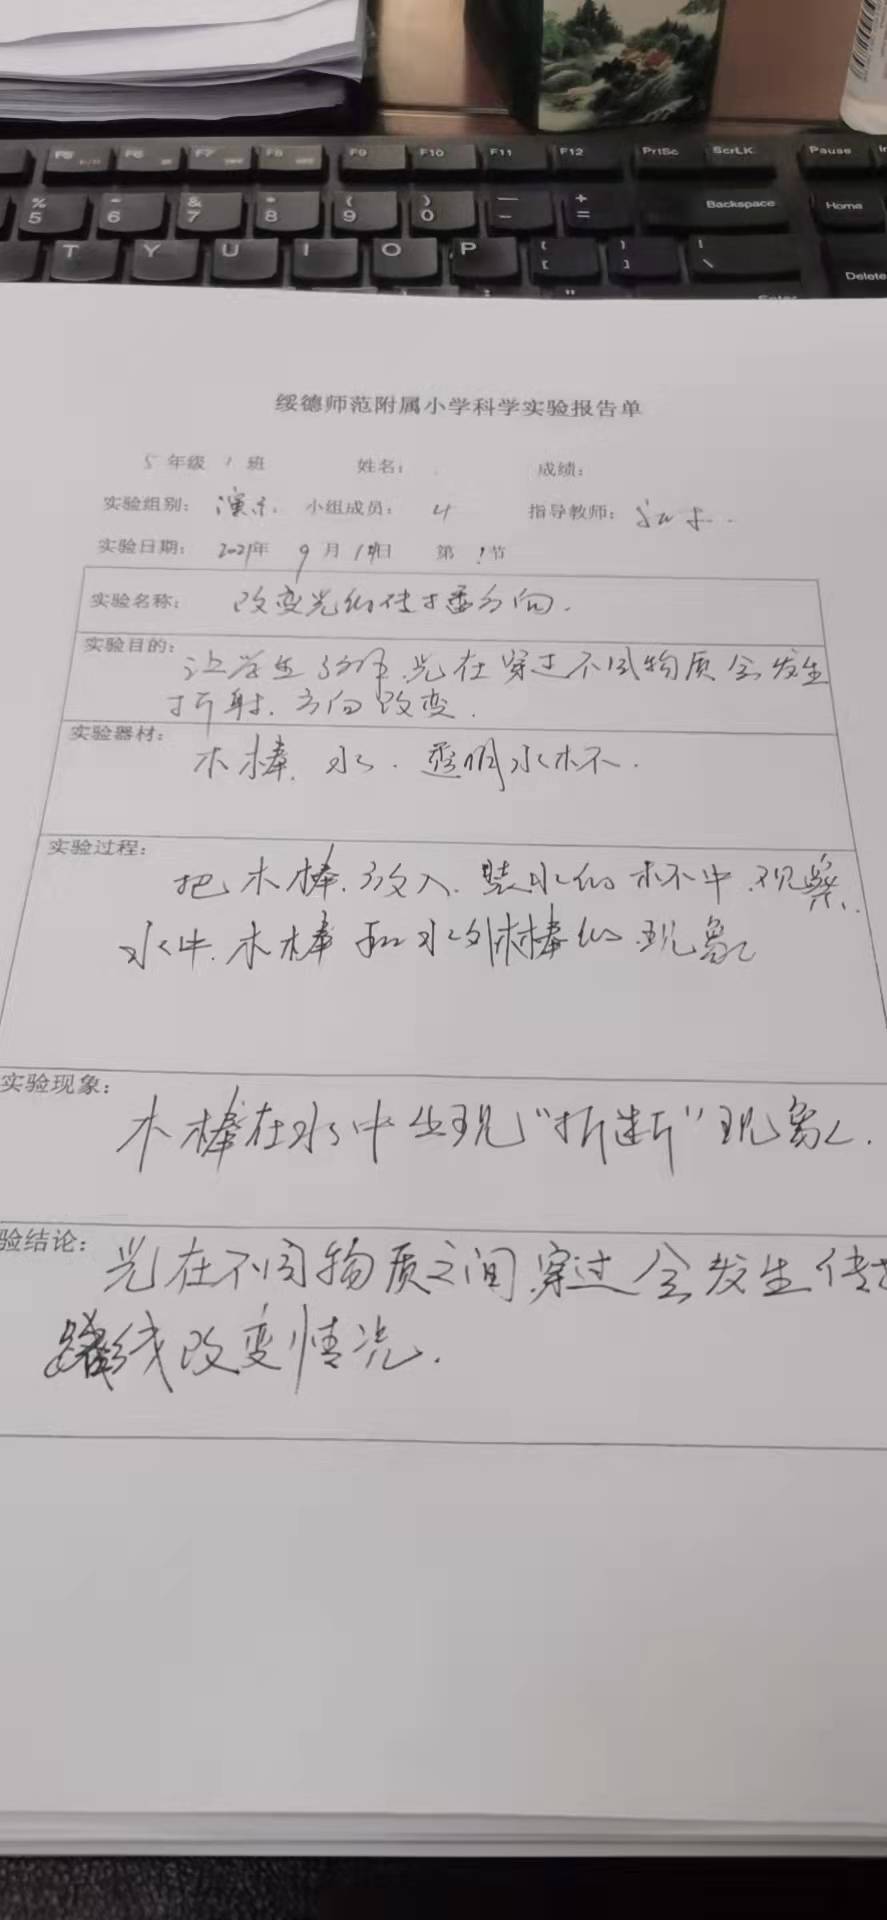 F5 F6 F7 F8 F9 F10 F11 F12 PrtSc ScrLK Pause
% 5 6 & 7 * 8 ( 9 ) 0 — - + = Backspace Home
T Y U I O P { [ } ] | \ Delete
Enter
绥德师范附属小学科学实验报告单
5 年级 1 班 姓名： 成绩：
实验组别： 演示 小组成员： 4 指导教师：
实验日期： 2021年 9 月 日 第 1 节
实验名称： 改变光的传播方向.
实验目的： 让学生 光在穿过不同物质会发生
折射.方向改变.
实验器材： 木棒. 水. 透明水杯.
实验过程：
把木棒.放入.装水的杯中.观察.
水中.木棒和水外木棒的.现象
实验现象：
木棒在水中出现"折断"现象.
验结论： 光在不同物质之间.穿过会发生传
路线改变情况.